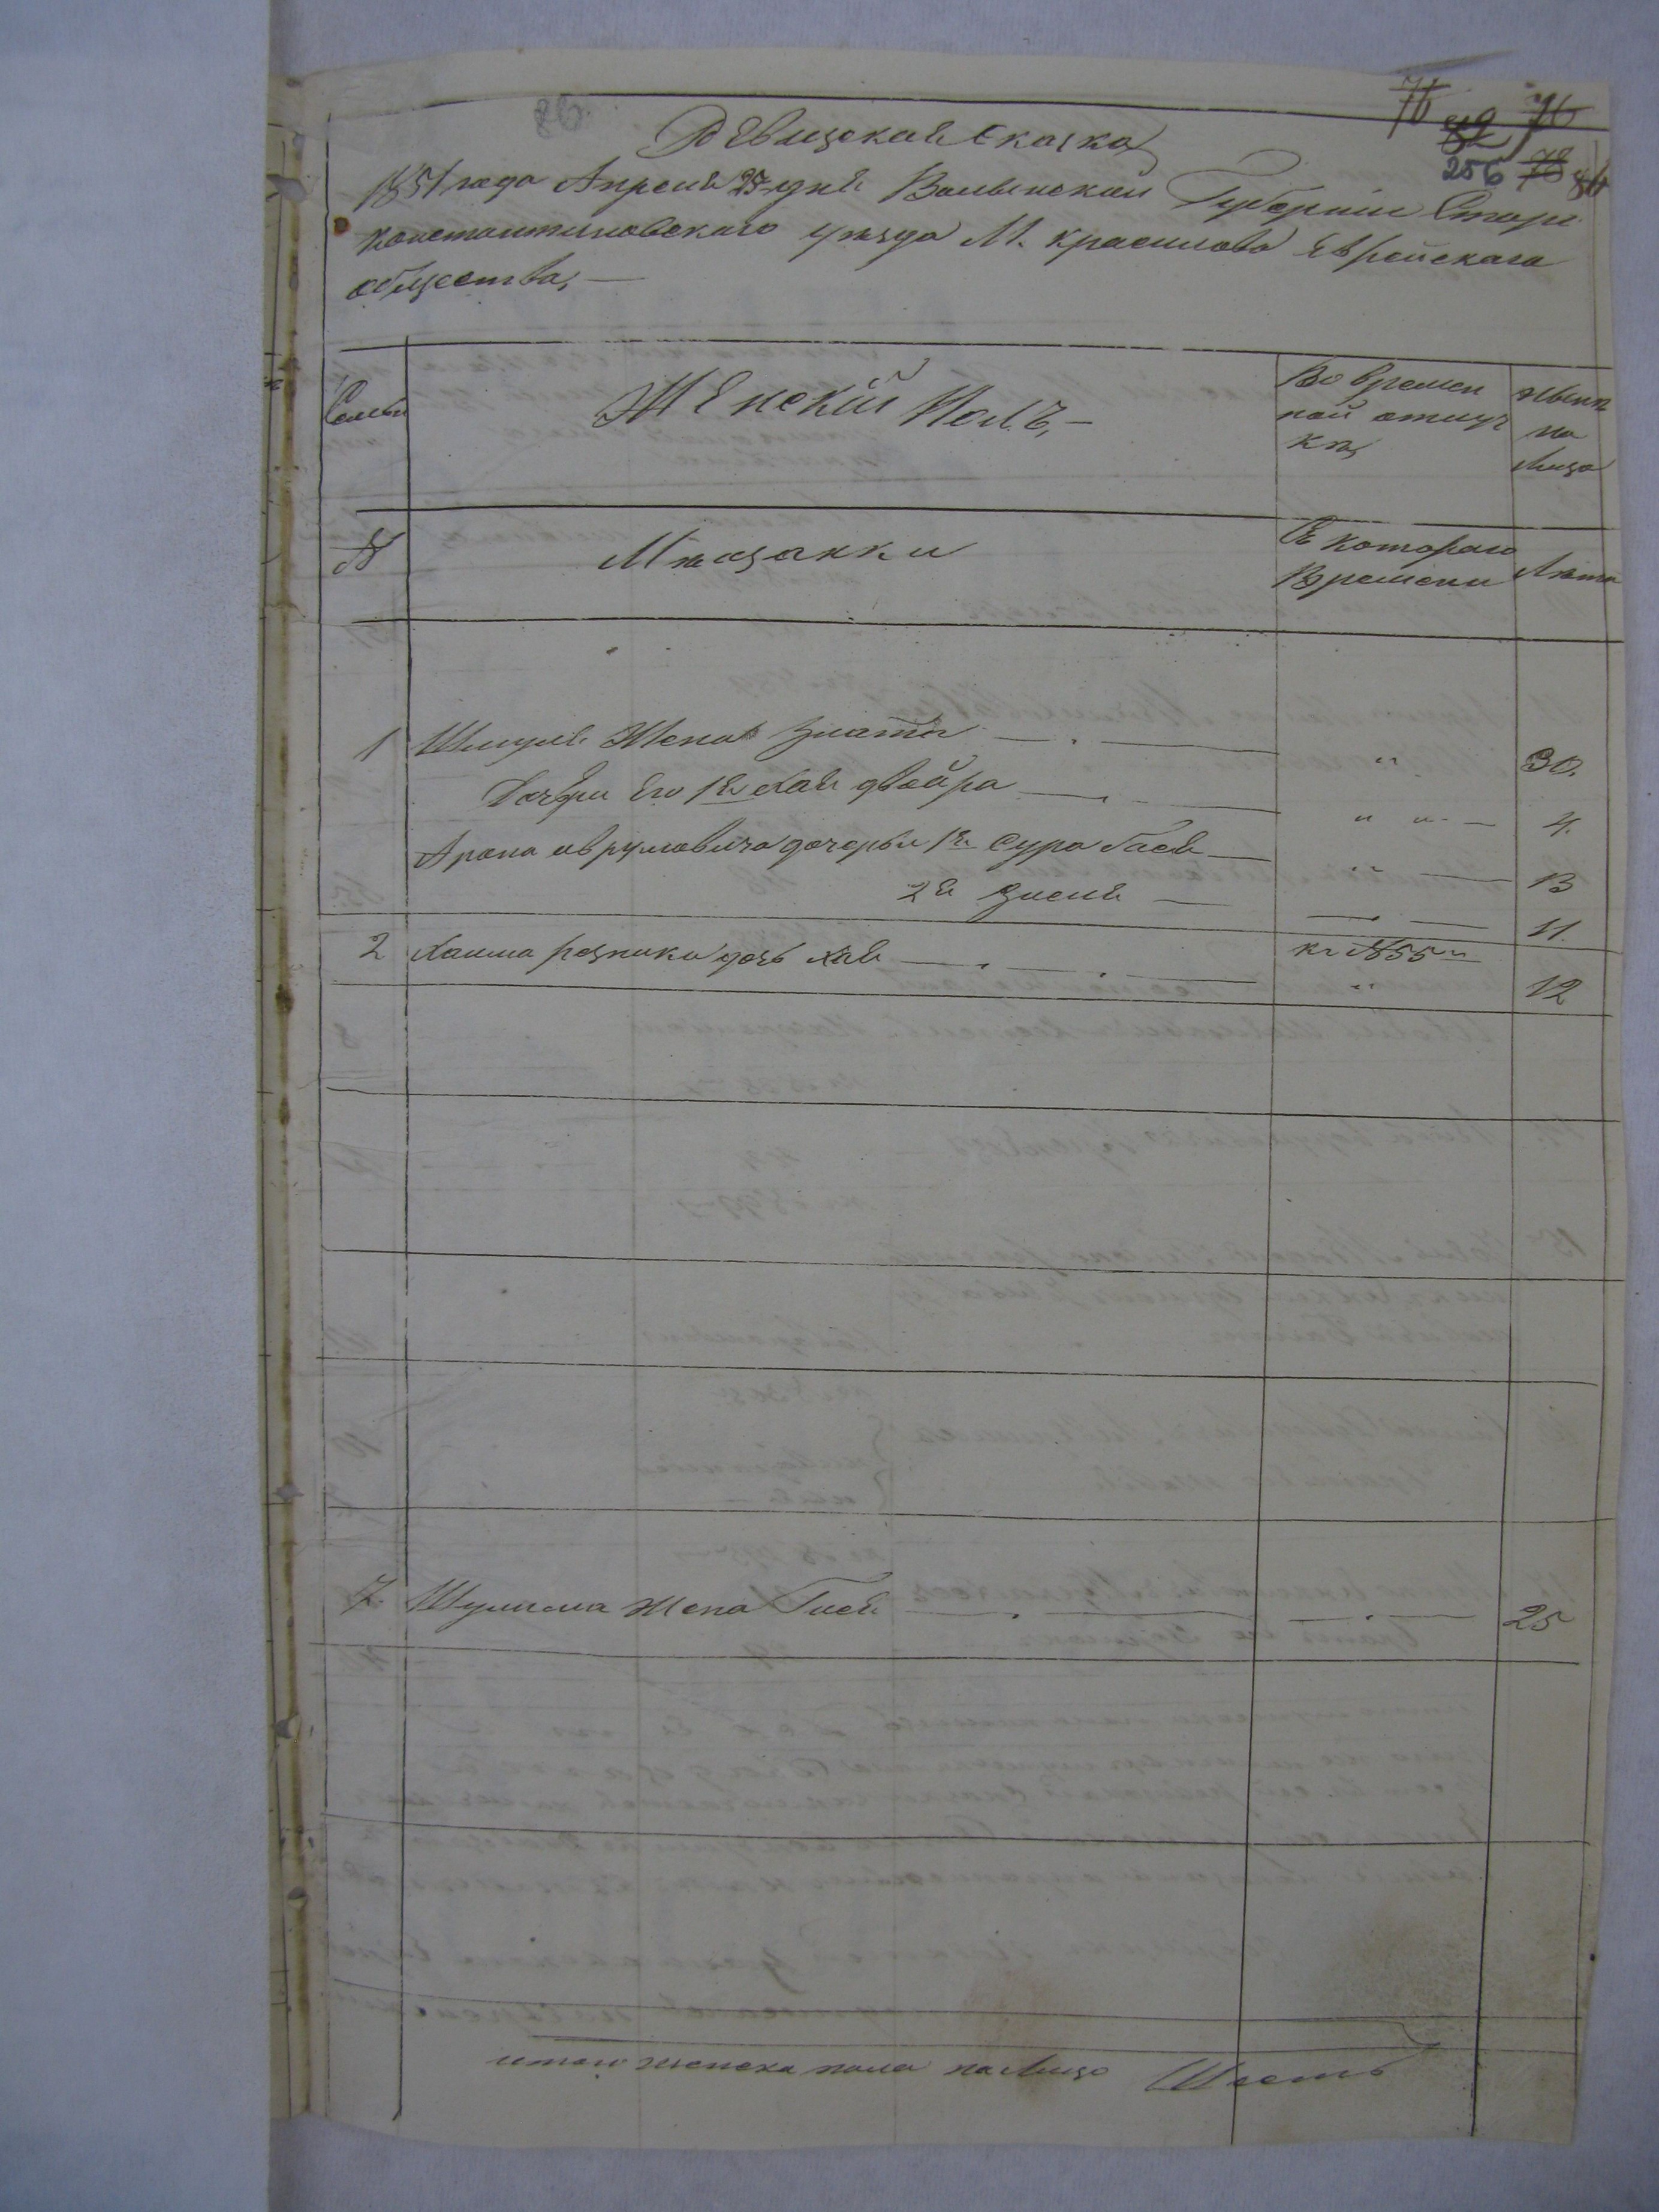 76 76
82
256 78 80
Ревизская Сказка
1851 года Апреля 25 дня Волынской Губернии Старо
константиновского уезда М. красилова Еврейскаго
общества,
Семьи
Женский Полъ,
Во времен
ной отлуч
кѣ,
Нынѣ
на
Лицо
№
Мѣщанки
Съ котораго
Времени
Лѣта
1 Шмуля Жена Злата " 30.
Дочери Его 1я Хая двойра " " 4.
Арона аврумовича дочерьи 1я Сура Бася " 13
2я Зисля 11.
2 Хаима резника дочь хая къ №55 "
" 12
7. Шулима Жена Гися 25
итого женска пола на Лицо Шесть